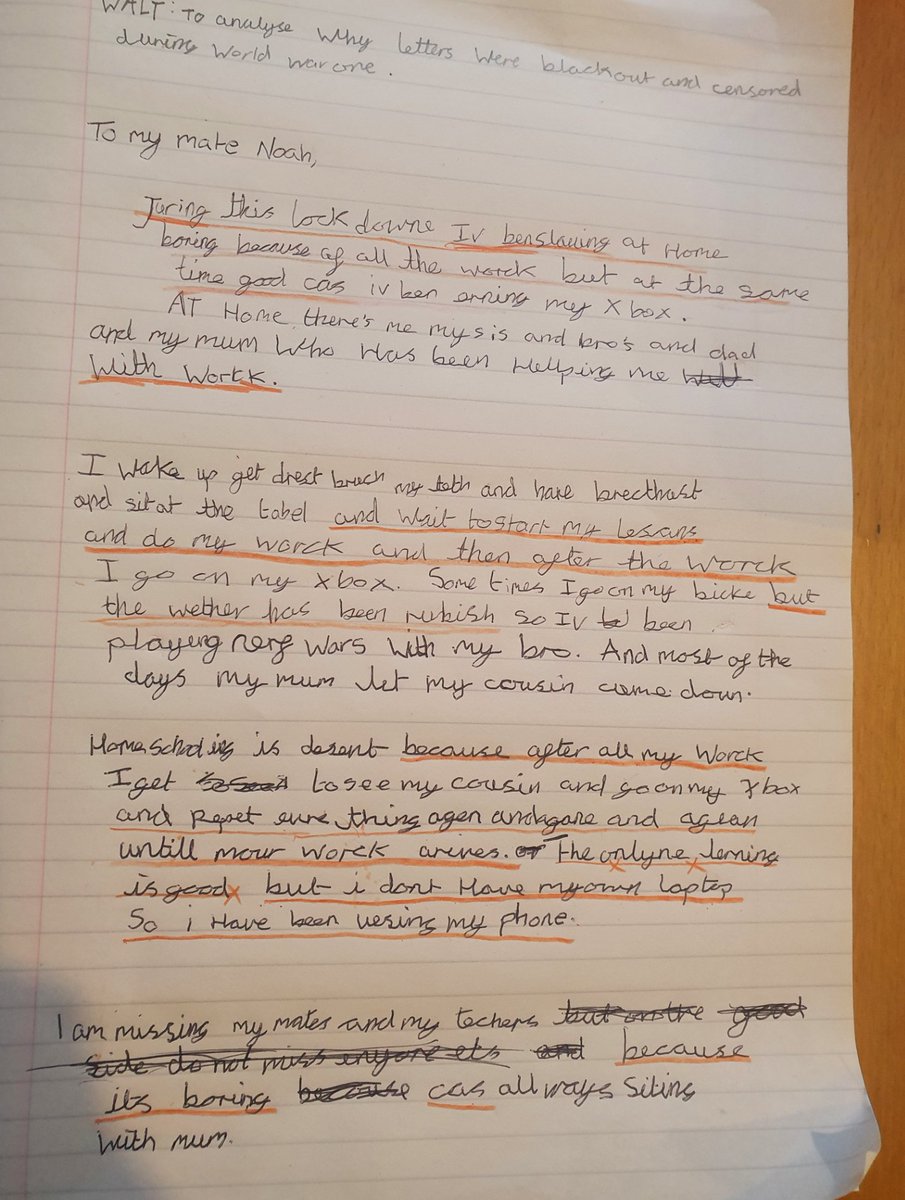 WALT: To analyse Why letters were blackout and censored
during World war one.
To my mate Noah,
Juring this lock downe Iv ben at Home
boring because of all the worck but at the same
time good cas iv ben erning my Xbox.
AT Home there's me my sis and bro's and dad
and my mum Who Has been Hellping me
With Worck.
I wake up get drest bruch my teth and have brecthast
and sit at the tabel and Wait to start my lesans
and do my worck and then after the Worck
I go on my xbox. Some times I go on my bicke but
the wether has been rubish so IV been
playing nerf wars With my bro. And most of the
days my mum let my cousin come down.
Home schooling is desent because after all my Worck
I get to see my cousin and go on my Xbox
and Repet evre thing agen and agane and agean
untill mour Worck arives. The onlyne lerning
is good but i dont Have my own laptop
So i Have been uesing my phone.
I am missing my mates and my techers but on the good
side do not miss enyone ets and because
its boring because cas all ways Siting
with mum.